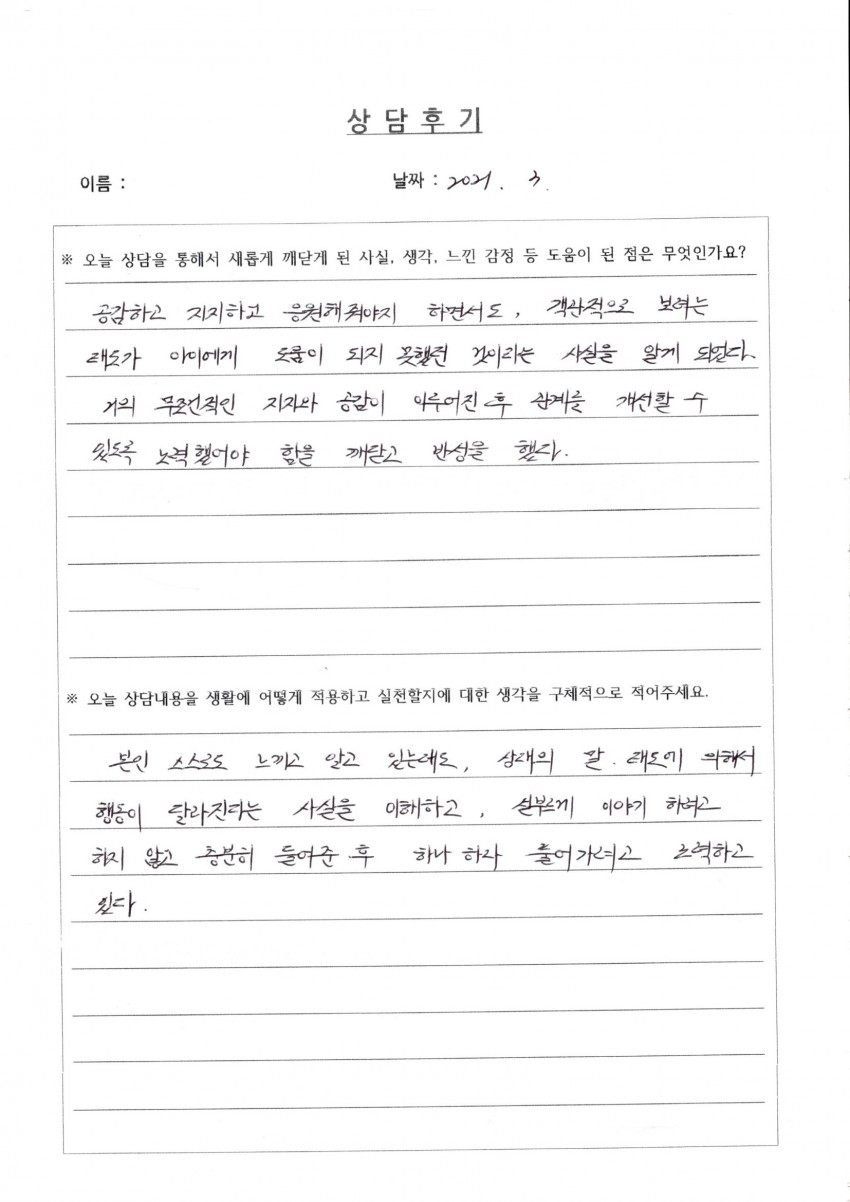 상담후기
이름 :
날짜 : 2021. 3.
※ 오늘 상담을 통해서 새롭게 깨닫게 된 사실, 생각, 느낀 감정 등 도움이 된 점은 무엇인가요?
공감하고 지지하고 응원해줘야지 하면서도, 객관적으로 보려는
태도가 아이에게 도움이 되지 못했던 것이라는 사실을 알게 되었다.
거의 무조건적인 지지와 공감이 이루어진 후 관계를 개선할 수
있도록 노력했어야 함을 깨닫고 반성을 했다.
※ 오늘 상담내용을 생활에 어떻게 적용하고 실천할지에 대한 생각을 구체적으로 적어주세요.
본인 스스로도 느끼고 알고 있는데도, 상대의 말. 태도에 의해서
행동이 달라진다는 사실을 이해하고, 섣부르게 이야기 하려고
하지 않고 충분히 들어준 후 하나 하나 풀어가려고 노력하고
있다.